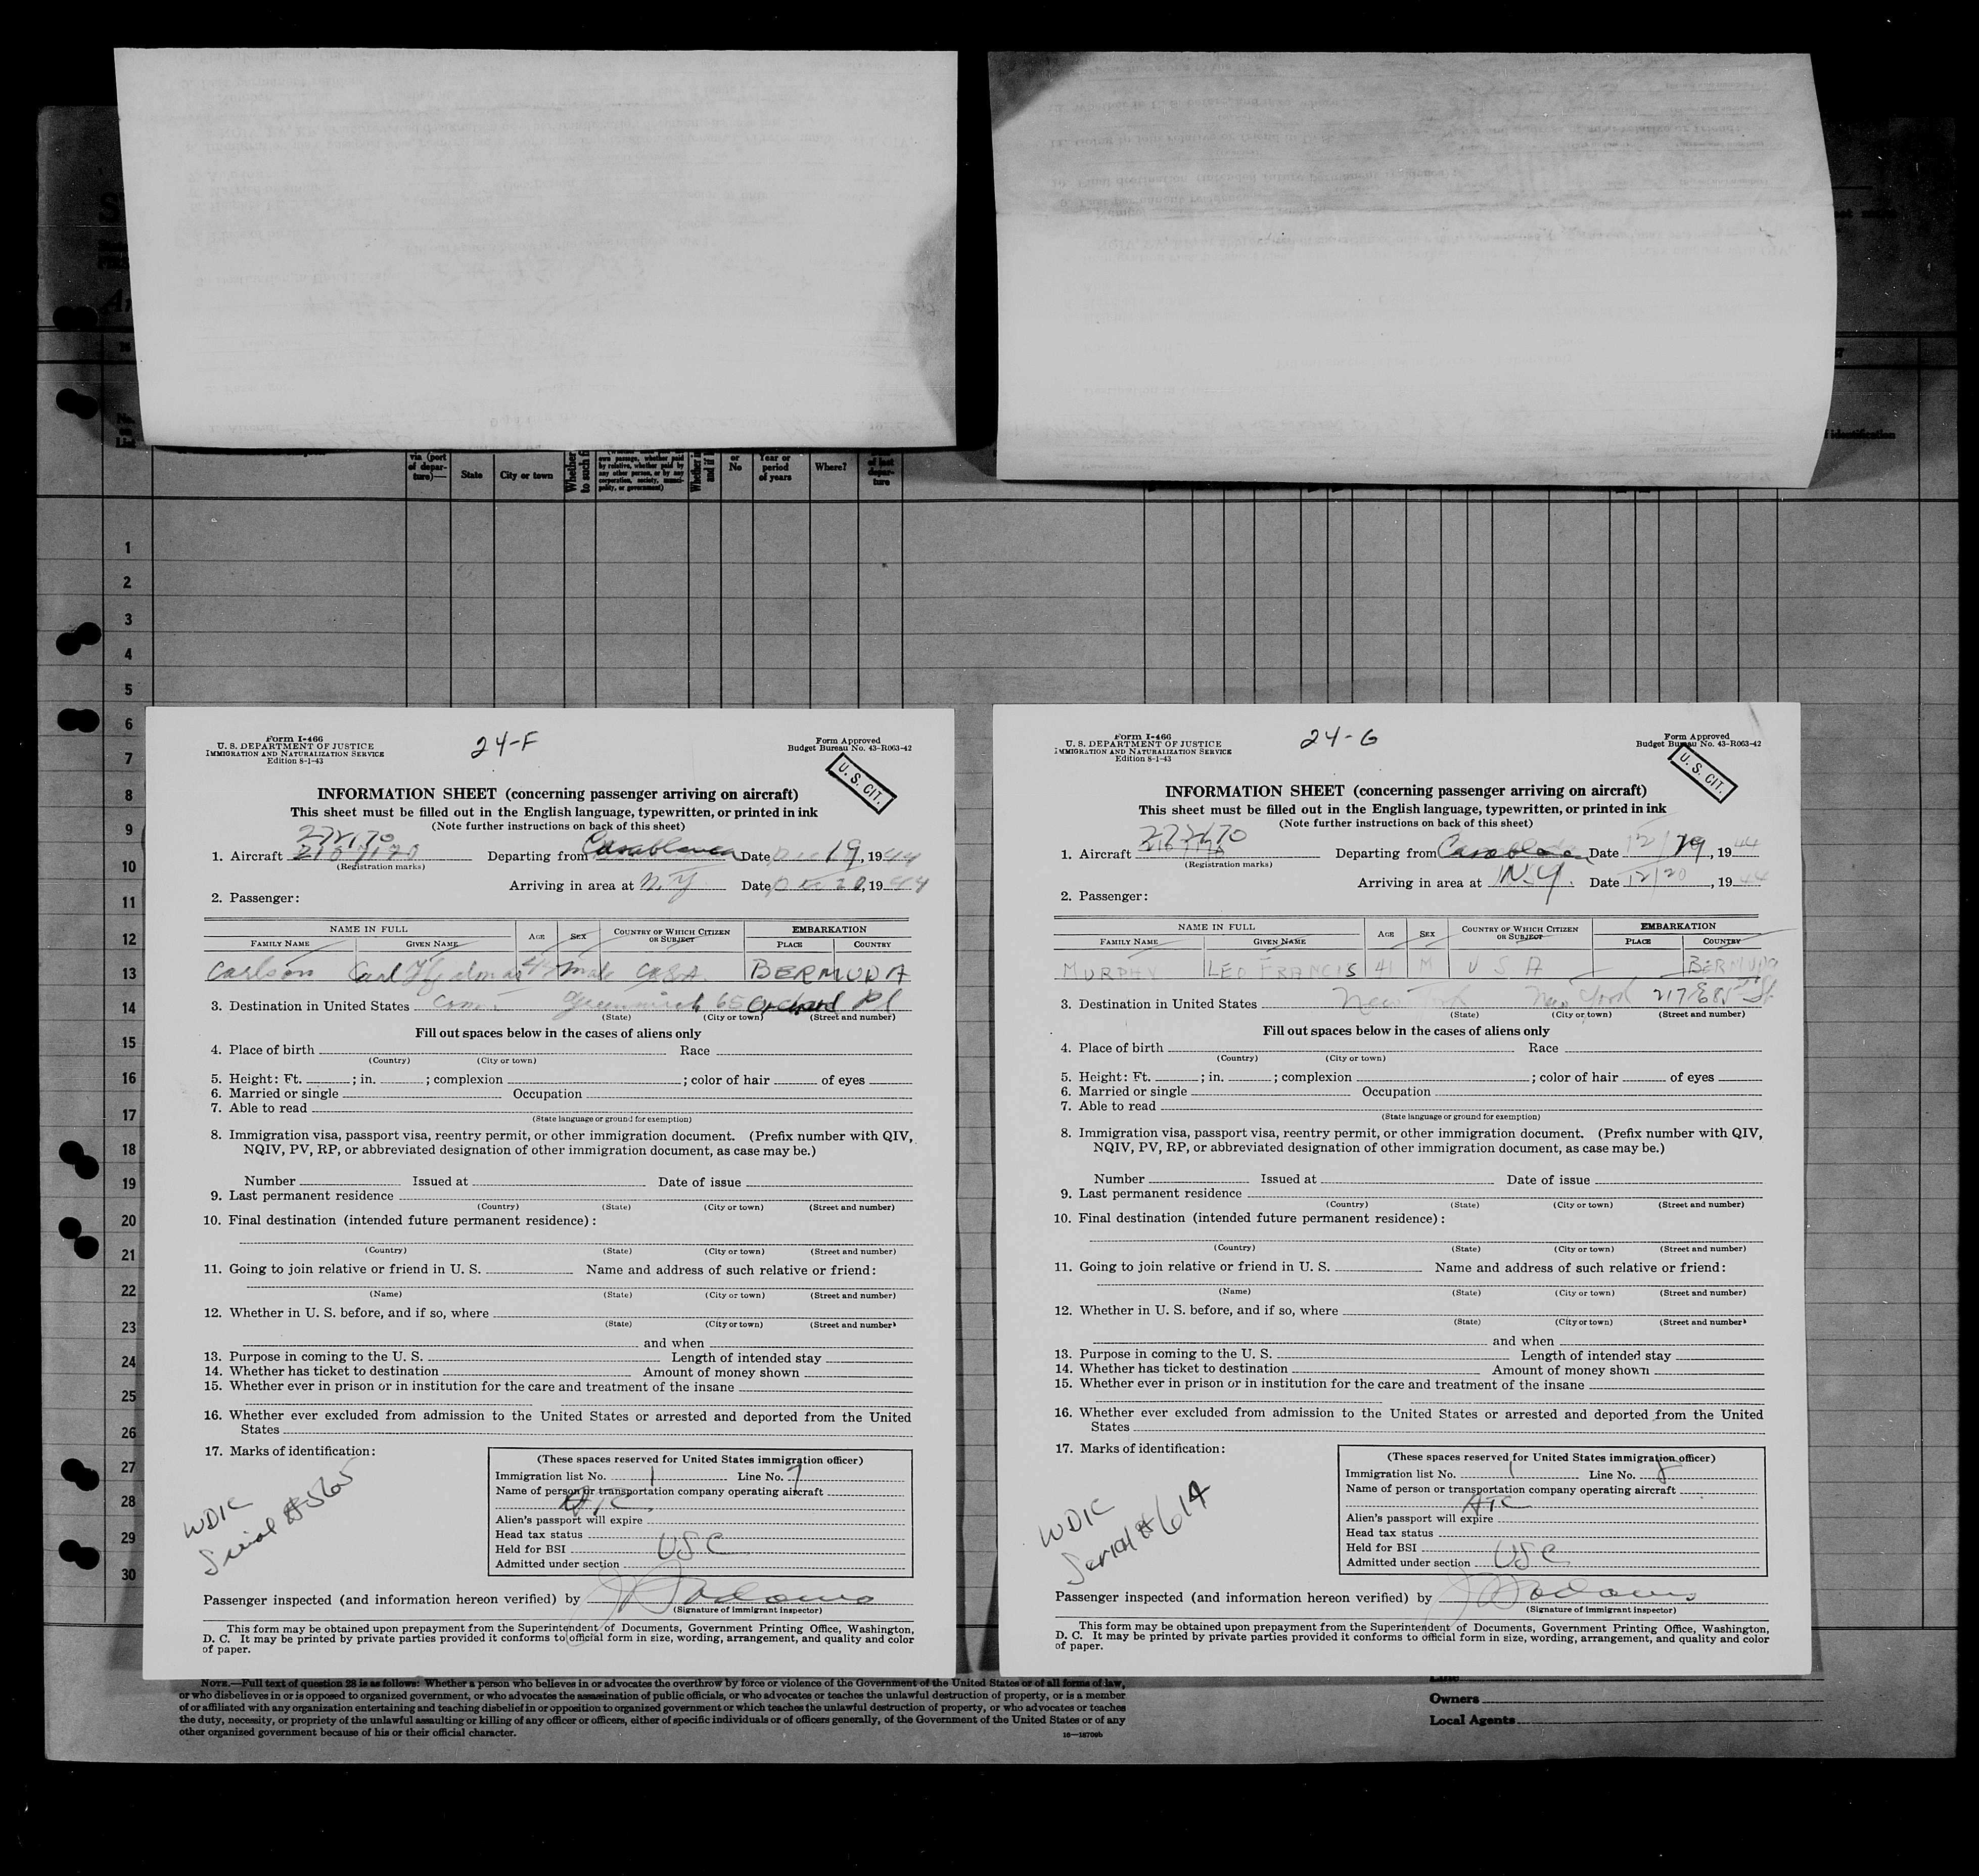 via (port
of depar-
ture)—
State
City or town
Whether
to such
own passage, whether paid
by relative, whether paid by
any other person, or by any
corporation, society, munici-
pality, or government)
Whether
and if
or
No
Year or
period
of years
Where?
of last
depar-
ture
identification
1
2
3
4
5
6
7
8
9
10
11
12
13
14
15
16
17
18
19
20
21
22
23
24
25
26
27
28
29
30
Form I-466
U. S. DEPARTMENT OF JUSTICE
IMMIGRATION AND NATURALIZATION SERVICE
Edition 8-1-43
24-F
Form Approved
Budget Bureau No. 43-R063-42
U. S. CIT.
INFORMATION SHEET (concerning passenger arriving on aircraft)
This sheet must be filled out in the English language, typewritten, or printed in ink
(Note further instructions on back of this sheet)
272170
1. Aircraft Departing from Casablanca Date Dec 19, 1944
(Registration marks)
Arriving in area at N.Y. Date Dec 20, 1944
2. Passenger:
NAME IN FULL AGE SEX COUNTRY OF WHICH CITIZEN OR SUBJECT EMBARKATION
FAMILY NAME GIVEN NAME PLACE COUNTRY
Carlson Carl Hjalmar male USA BERMUDA
3. Destination in United States Conn. Greenwich 65 Orchard Pl
(State) (City or town) (Street and number)
Fill out spaces below in the cases of aliens only
4. Place of birth Race
(Country) (City or town)
5. Height: Ft. ; in. ; complexion ; color of hair of eyes
6. Married or single Occupation
7. Able to read
(State language or ground for exemption)
8. Immigration visa, passport visa, reentry permit, or other immigration document. (Prefix number with QIV,
NQIV, PV, RP, or abbreviated designation of other immigration document, as case may be.)
Number Issued at Date of issue
9. Last permanent residence
(Country) (State) (City or town) (Street and number)
10. Final destination (intended future permanent residence):
(Country) (State) (City or town) (Street and number)
11. Going to join relative or friend in U. S. Name and address of such relative or friend:
(Name) (State) (City or town) (Street and number)
12. Whether in U. S. before, and if so, where
(State) (City or town) (Street and number)
and when
13. Purpose in coming to the U. S. Length of intended stay
14. Whether has ticket to destination Amount of money shown
15. Whether ever in prison or in institution for the care and treatment of the insane
16. Whether ever excluded from admission to the United States or arrested and deported from the United
States
17. Marks of identification:
WDIC
Serial # 565
(These spaces reserved for United States immigration officer)
Immigration list No. 1 Line No. 7
Name of person or transportation company operating aircraft
ATC
Alien's passport will expire
Head tax status
Held for BSI USC
Admitted under section
Passenger inspected (and information hereon verified) by
(Signature of immigrant inspector)
This form may be obtained upon prepayment from the Superintendent of Documents, Government Printing Office, Washington,
D. C. It may be printed by private parties provided it conforms to official form in size, wording, arrangement, and quality and color
of paper.
Form I-466
U. S. DEPARTMENT OF JUSTICE
IMMIGRATION AND NATURALIZATION SERVICE
Edition 8-1-43
24-G
Form Approved
Budget Bureau No. 43-R063-42
U. S. CIT.
INFORMATION SHEET (concerning passenger arriving on aircraft)
This sheet must be filled out in the English language, typewritten, or printed in ink
(Note further instructions on back of this sheet)
272170
1. Aircraft Departing from Casablanca Date 12/19, 1944
(Registration marks)
Arriving in area at N.Y. Date 12/20, 1944
2. Passenger:
NAME IN FULL AGE SEX COUNTRY OF WHICH CITIZEN OR SUBJECT EMBARKATION
FAMILY NAME GIVEN NAME PLACE COUNTRY
MURPHY LEO FRANCIS 41 M U S A BERMUDA
3. Destination in United States New York New York 217 E 85th St.
(State) (City or town) (Street and number)
Fill out spaces below in the cases of aliens only
4. Place of birth Race
(Country) (City or town)
5. Height: Ft. ; in. ; complexion ; color of hair of eyes
6. Married or single Occupation
7. Able to read
(State language or ground for exemption)
8. Immigration visa, passport visa, reentry permit, or other immigration document. (Prefix number with QIV,
NQIV, PV, RP, or abbreviated designation of other immigration document, as case may be.)
Number Issued at Date of issue
9. Last permanent residence
(Country) (State) (City or town) (Street and number)
10. Final destination (intended future permanent residence):
(Country) (State) (City or town) (Street and number)
11. Going to join relative or friend in U. S. Name and address of such relative or friend:
(Name) (State) (City or town) (Street and number)
12. Whether in U. S. before, and if so, where
(State) (City or town) (Street and number)
and when
13. Purpose in coming to the U. S. Length of intended stay
14. Whether has ticket to destination Amount of money shown
15. Whether ever in prison or in institution for the care and treatment of the insane
16. Whether ever excluded from admission to the United States or arrested and deported from the United
States
17. Marks of identification:
WDIC
Serial # 614
(These spaces reserved for United States immigration officer)
Immigration list No. 1 Line No. 8
Name of person or transportation company operating aircraft
ATC
Alien's passport will expire
Head tax status
Held for BSI
Admitted under section USC
Passenger inspected (and information hereon verified) by
(Signature of immigrant inspector)
This form may be obtained upon prepayment from the Superintendent of Documents, Government Printing Office, Washington,
D. C. It may be printed by private parties provided it conforms to official form in size, wording, arrangement, and quality and color
of paper.
NOTE.—Full text of question 28 is as follows: Whether a person who believes in or advocates the overthrow by force or violence of the Government of the United States or of all forms of law,
or who disbelieves in or is opposed to organized government, or who advocates the assassination of public officials, or who advocates or teaches the unlawful destruction of property, or is a member
of or affiliated with any organization entertaining and teaching disbelief in or opposition to organized government or which teaches the unlawful destruction of property, or who advocates or teaches
the duty, necessity, or propriety of the unlawful assaulting or killing of any officer or officers, either of specific individuals or of officers generally, of the Government of the United States or of any
other organized government because of his or their official character.
16—18709b
Line
Owners
Local Agents